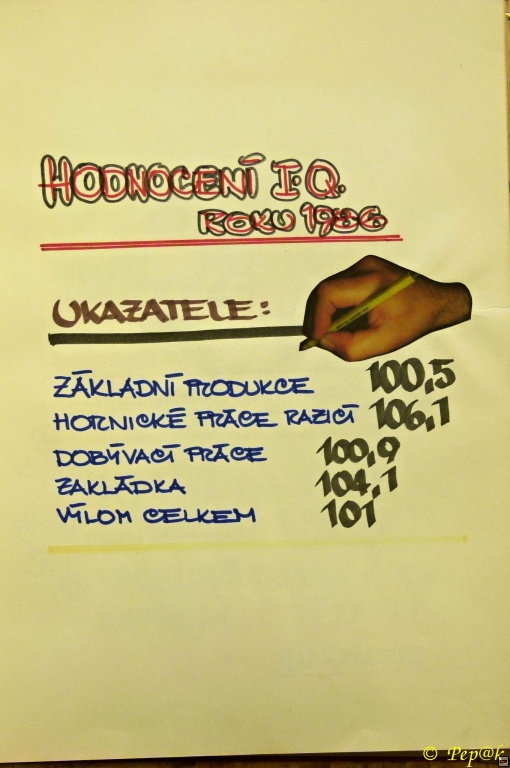 HODNOCENÍ I.Q.
ROKU 1986
UKAZATELE:
ZÁKLADNÍ PRODUKCE 100,5
HORNICKÉ PRÁCE RAZICÍ 106,1
DOBÝVACÍ PRÁCE 100,9
ZAKLÁDKA 104,1
VÝLOM CELKEM 101
© Pep@k